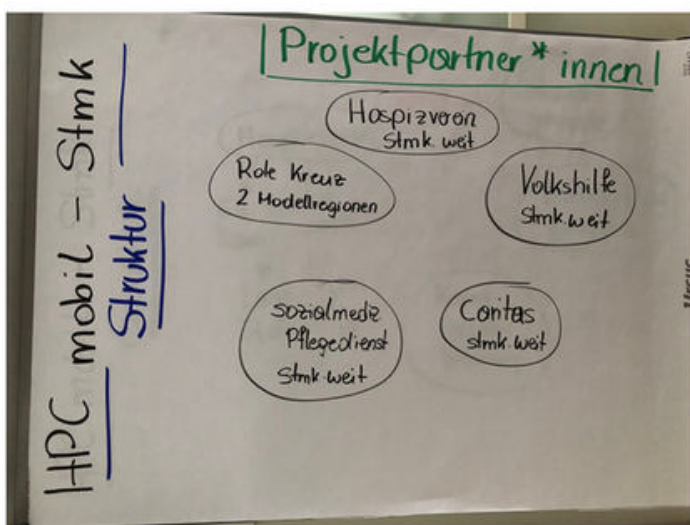 HPC mobil - Stmk
Struktur
Projektpartner*innen
Hospizverein
Stmk. weit
Rote Kreuz
2 Modellregionen
Volkshilfe
Stmk. weit
Sozialmediz
Pflegedienst
Stmk. weit
Caritas
stmk. weit